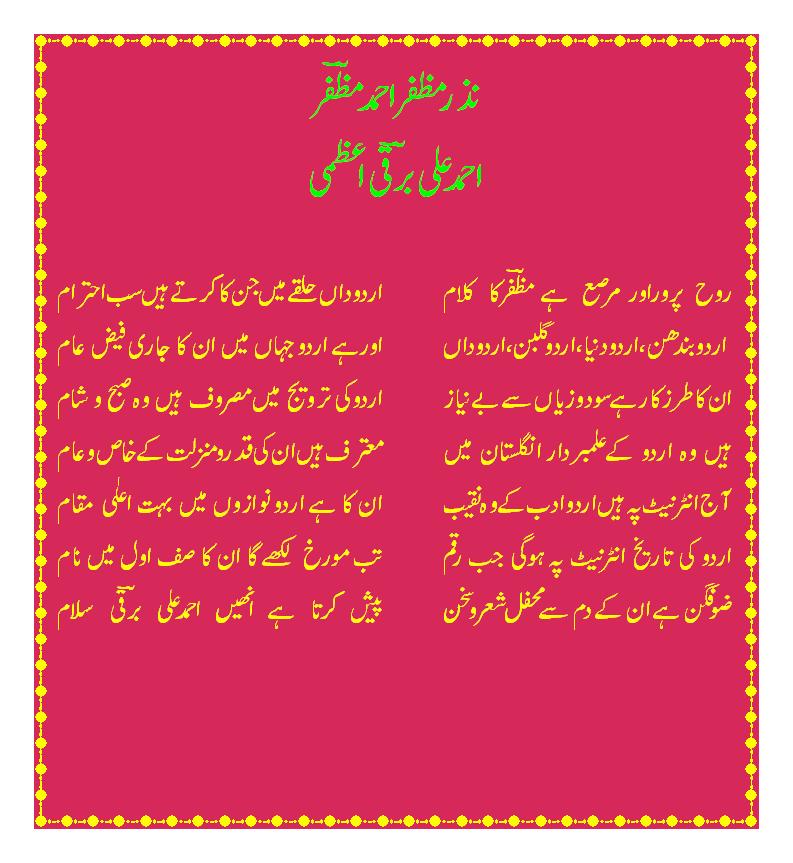 نذرِ مظفر احمد مظفرؔ
احمد علی برقیؔ اعظمی
روح پرور اور مرصع ہے مظفرؔ کا کلام اردو داں حلقے میں جن کا کرتے ہیں سب احترام
اردو بندھن، اردو دنیا، اردو گلبن، اردو داں اور ہے اردو جہاں میں ان کا جاری فیض عام
ان کا طرز کار ہے سود و زیاں سے بے نیاز اردو کی ترویج میں مصروف ہیں وہ صبح و شام
ہیں وہ اردو کے علمبردار انگلستان میں معترف ہیں ان کی قدر و منزلت کے خاص و عام
آج انٹرنیٹ پہ ہیں اردو ادب کے وہ نقیب ان کا ہے اردو نوازوں میں بہت اعلٰی مقام
اردو کی تاریخ انٹرنیٹ پہ ہوگی جب رقم تب مورخ لکھے گا ان کا صف اول میں نام
ضوفگن ہے ان کے دم سے محفل شعر و سخن پیش کرتا ہے انھیں احمد علی برقیؔ سلام